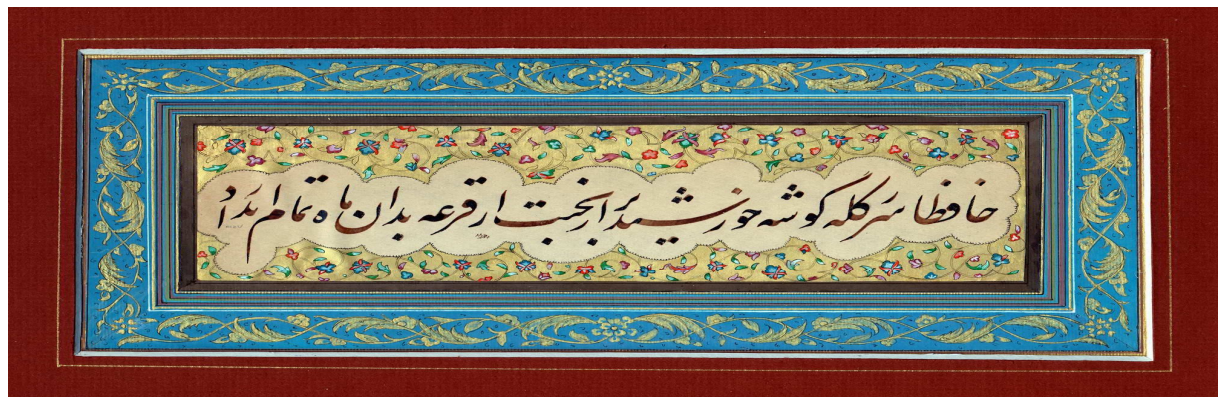 حافظا سر ز کله گوشه خورشید برآر بختت ار قرعه بدان ماه تمام اندازد